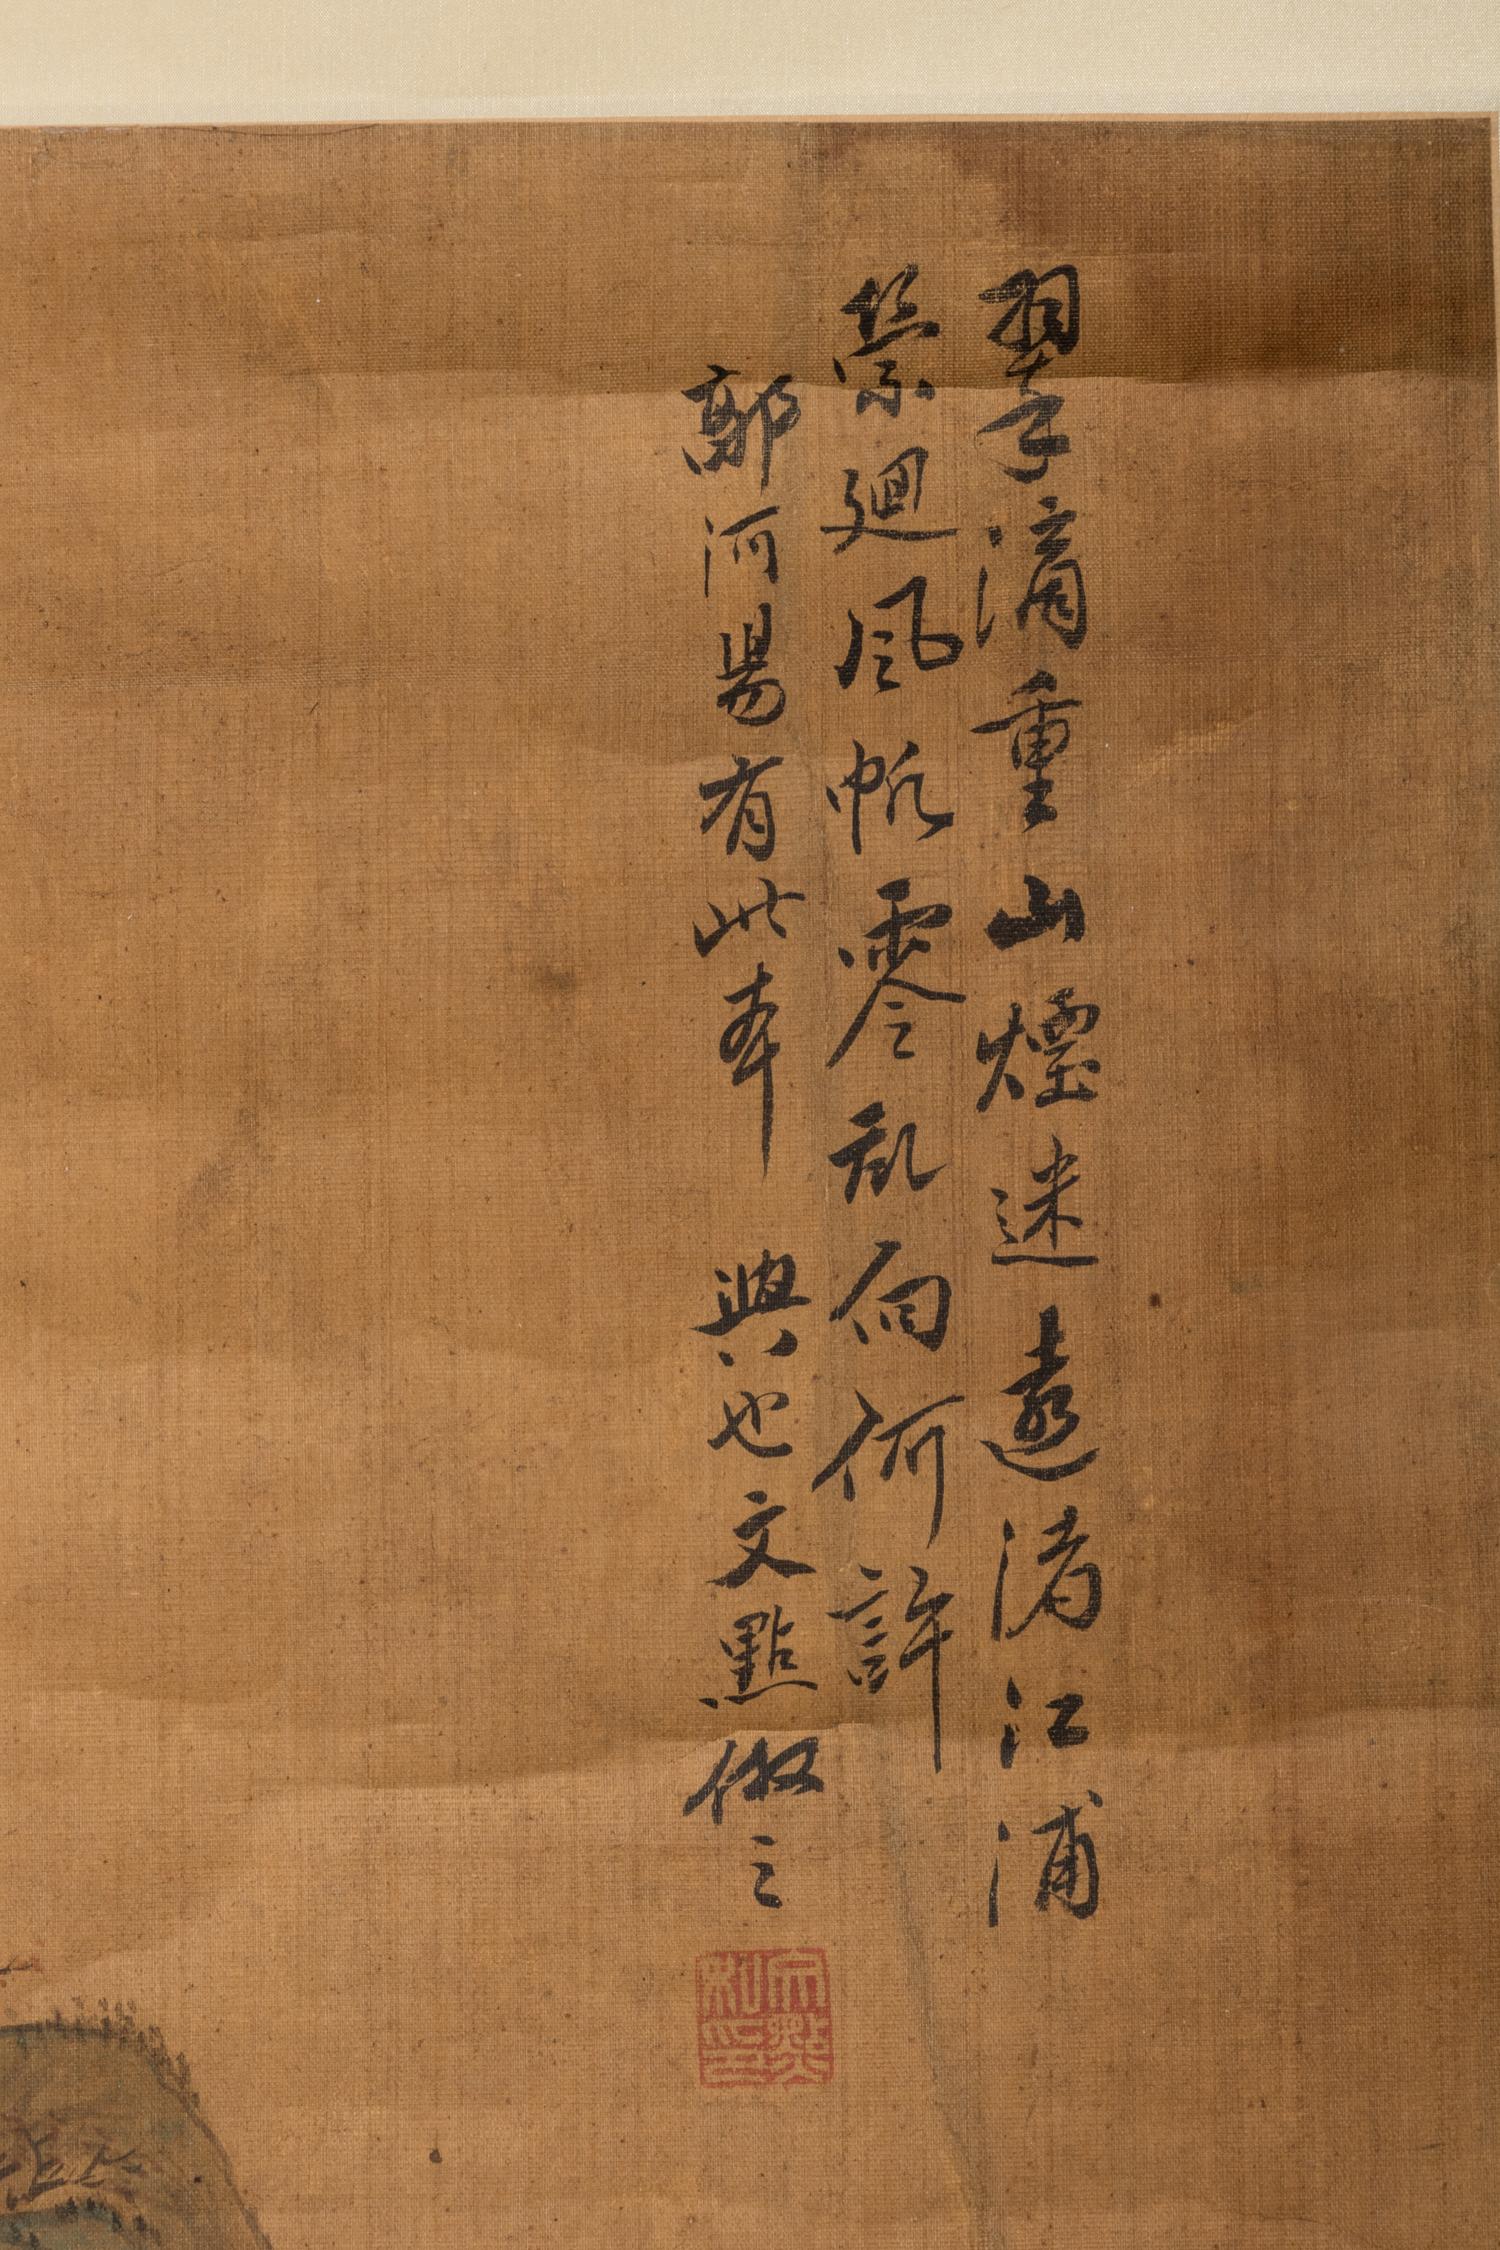 翠滴重山煙迷遠渚江浦
縈廻風帆零乱向何許
郭河陽有此本 興也文點倣之